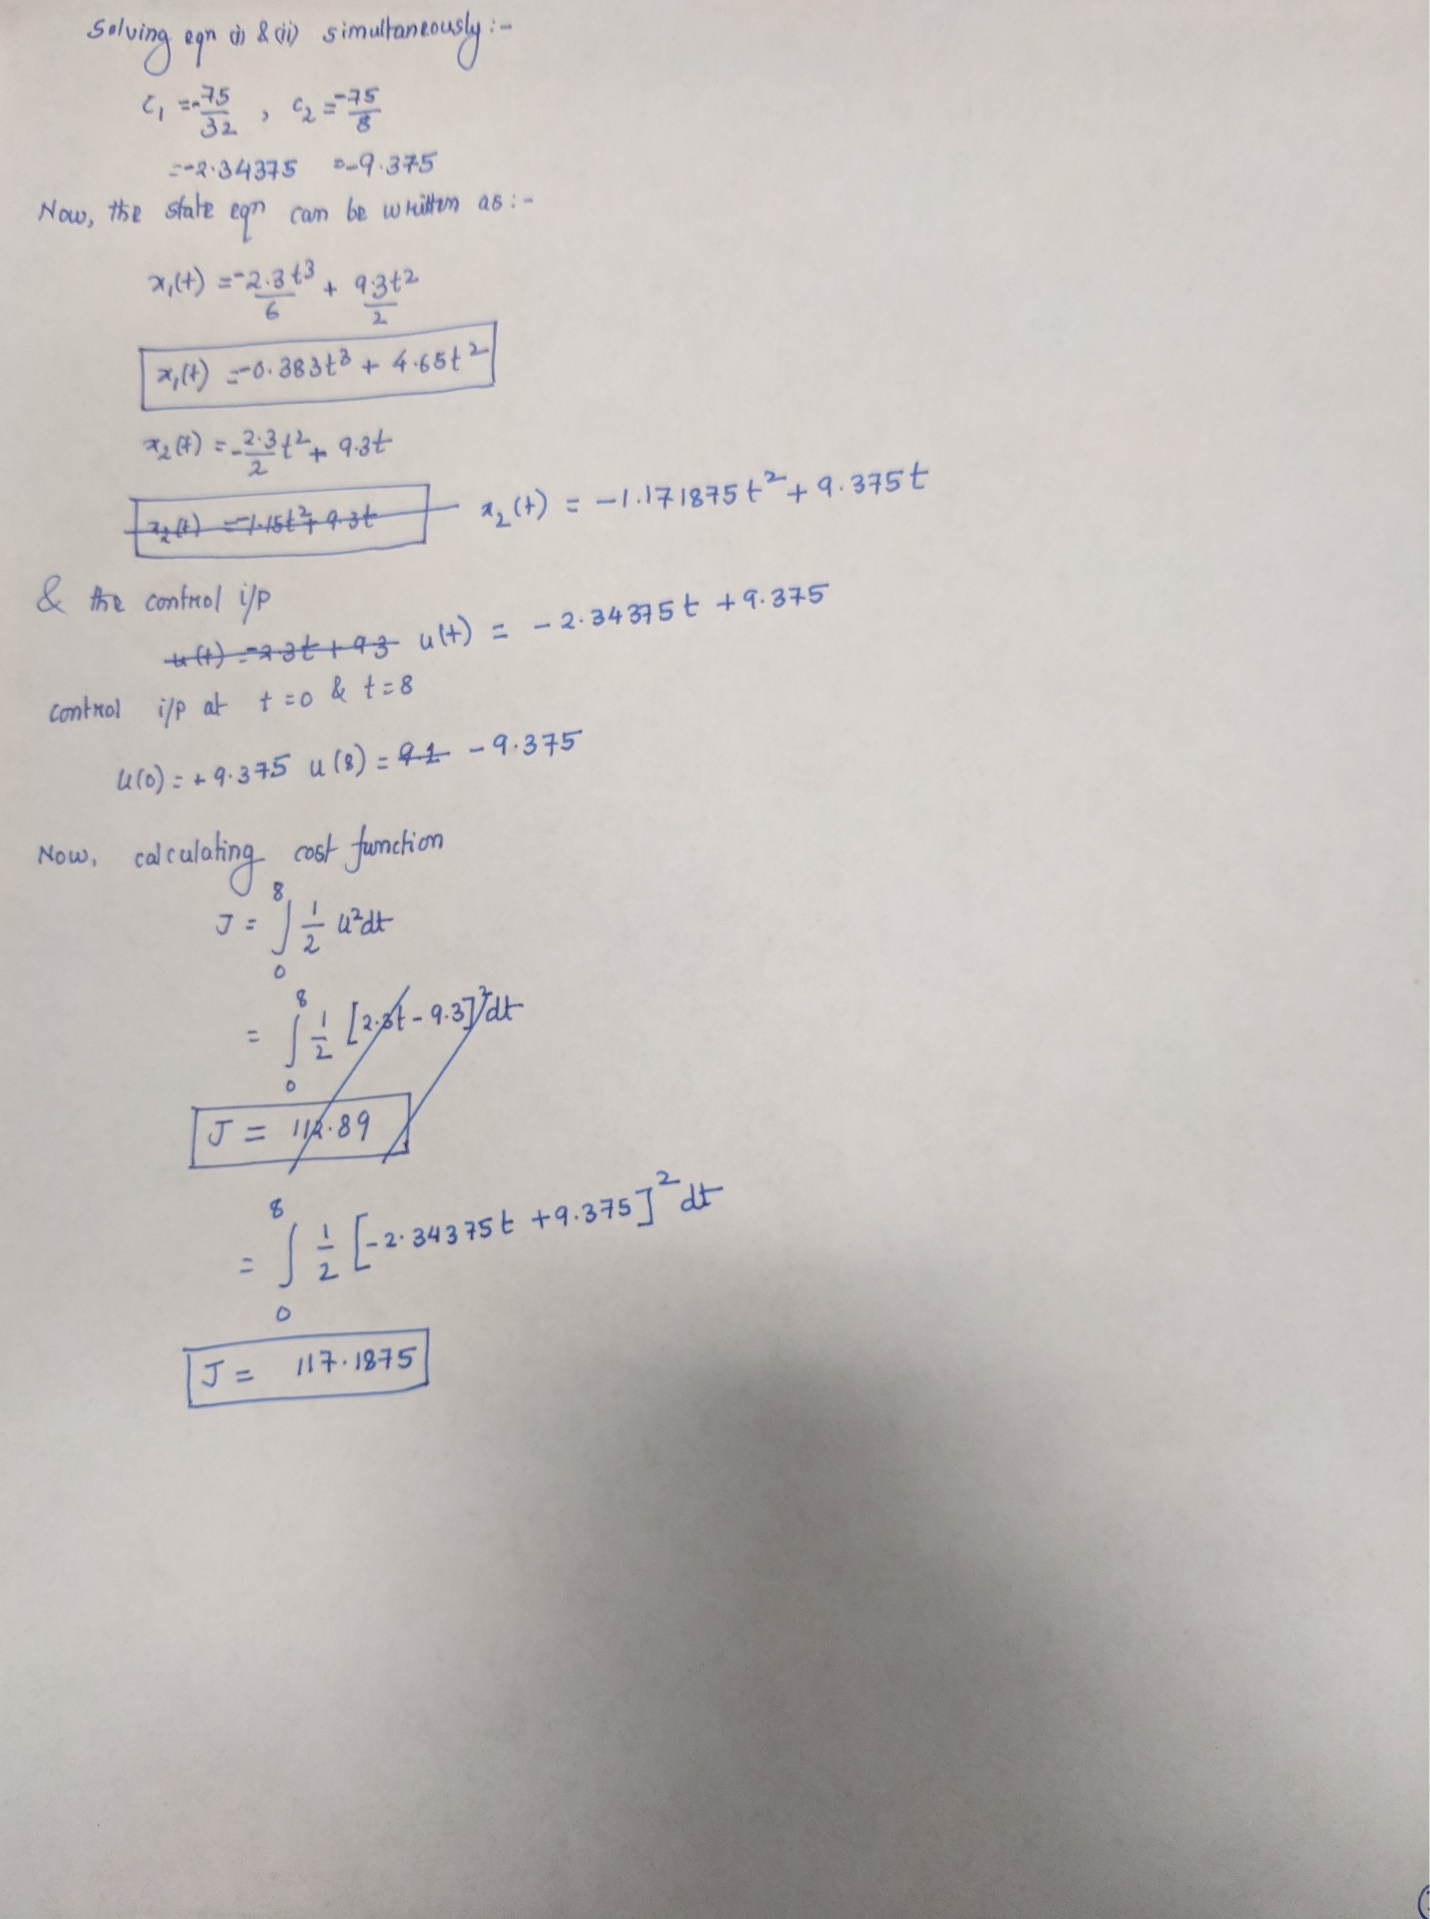 Solving eqn (i) & (ii) simultaneously :-
c₁ = -75/32 , c₂ = -75/8
= -2.34375 = -9.375
Now, the state eqn can be written as :-
x₁(t) = -2.3t³/6 + 9.3t²/2
x₁(t) = -0.383t³ + 4.65t²
x₂(t) = -2.3/2 t² + 9.3t
x₂(t) = -1.15t² + 9.3t x₂(t) = -1.171875t² + 9.375t
& the control i/p
u(t) = -2.3t + 9.3 u(t) = -2.34375t + 9.375
control i/p at t=0 & t=8
u(0) = +9.375 u(8) = 9.1 -9.375
Now, calculating cost function
J = ∫₀⁸ 1/2 u²dt
= ∫₀⁸ 1/2 [2.3t - 9.3]²dt
J = 112.89
= ∫₀⁸ 1/2 [-2.34375t + 9.375]² dt
J = 117.1875